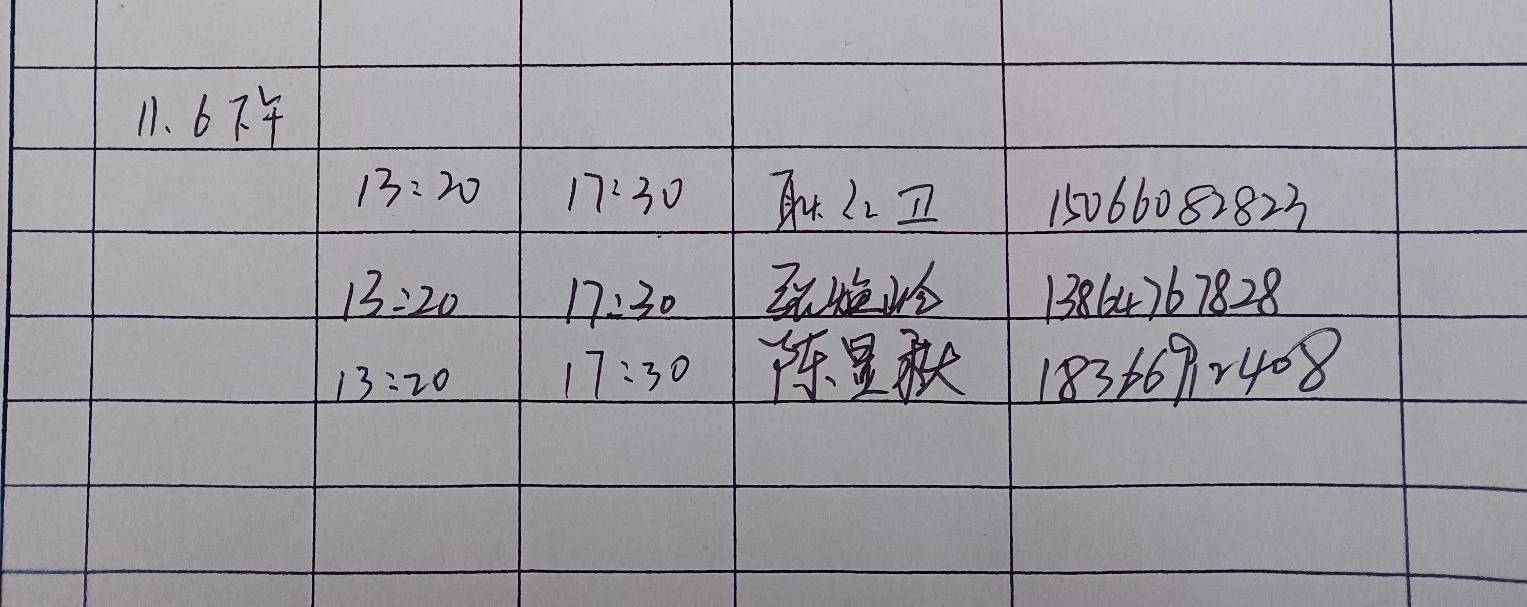 11.6下午
13:20 17:30 耿红卫 15066082823
13:20 17:30 13864767828
13:20 17:30 陈显秋 18366912408